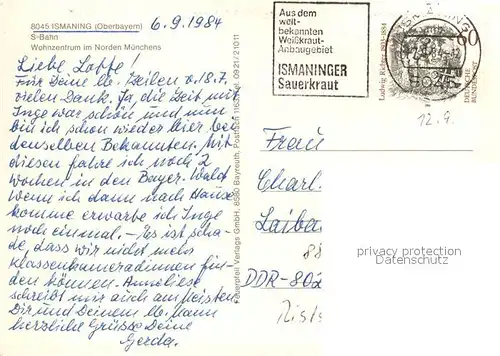 8045 ISMANING (Oberbayern)
S-Bahn
Wohnzentrum im Norden Münchens
6.9.1984
Liebe Lotte!
Für Deine lb. Zeilen v. 18.7.
vielen Dank. Ja, die Zeit mit
Inge war schön und nun
bin ich schon wieder hier bei
denselben Bekannten. Mit
diesen fahre ich noch 2
Wochen in den Bayer. Wald.
Wenn ich dann nach Hause
komme erwarte ich Inge
noch einmal. – Es ist scha-
de, dass wir nicht mehr
Klassenkameradinnen fin-
den können. Anneliese
schreibt mir auch am meisten.
Dir und Deinem lb. Mann
herzliche Grüsse Deine
Gerda.
Feuerpfeil Verlags GmbH, 8580 Bayreuth, Postfach 0921/21011
Aus dem
welt-
bekannten
Weißkraut-
Anbaugebiet
ISMANINGER
Sauerkraut
Ludwig Richter 1803-1884
60
DEUTSCHE
BUNDESPOST
12.9.
Frau
Charl.
Laiba
88
DDR-802
privacy protection
www.oldthing.de